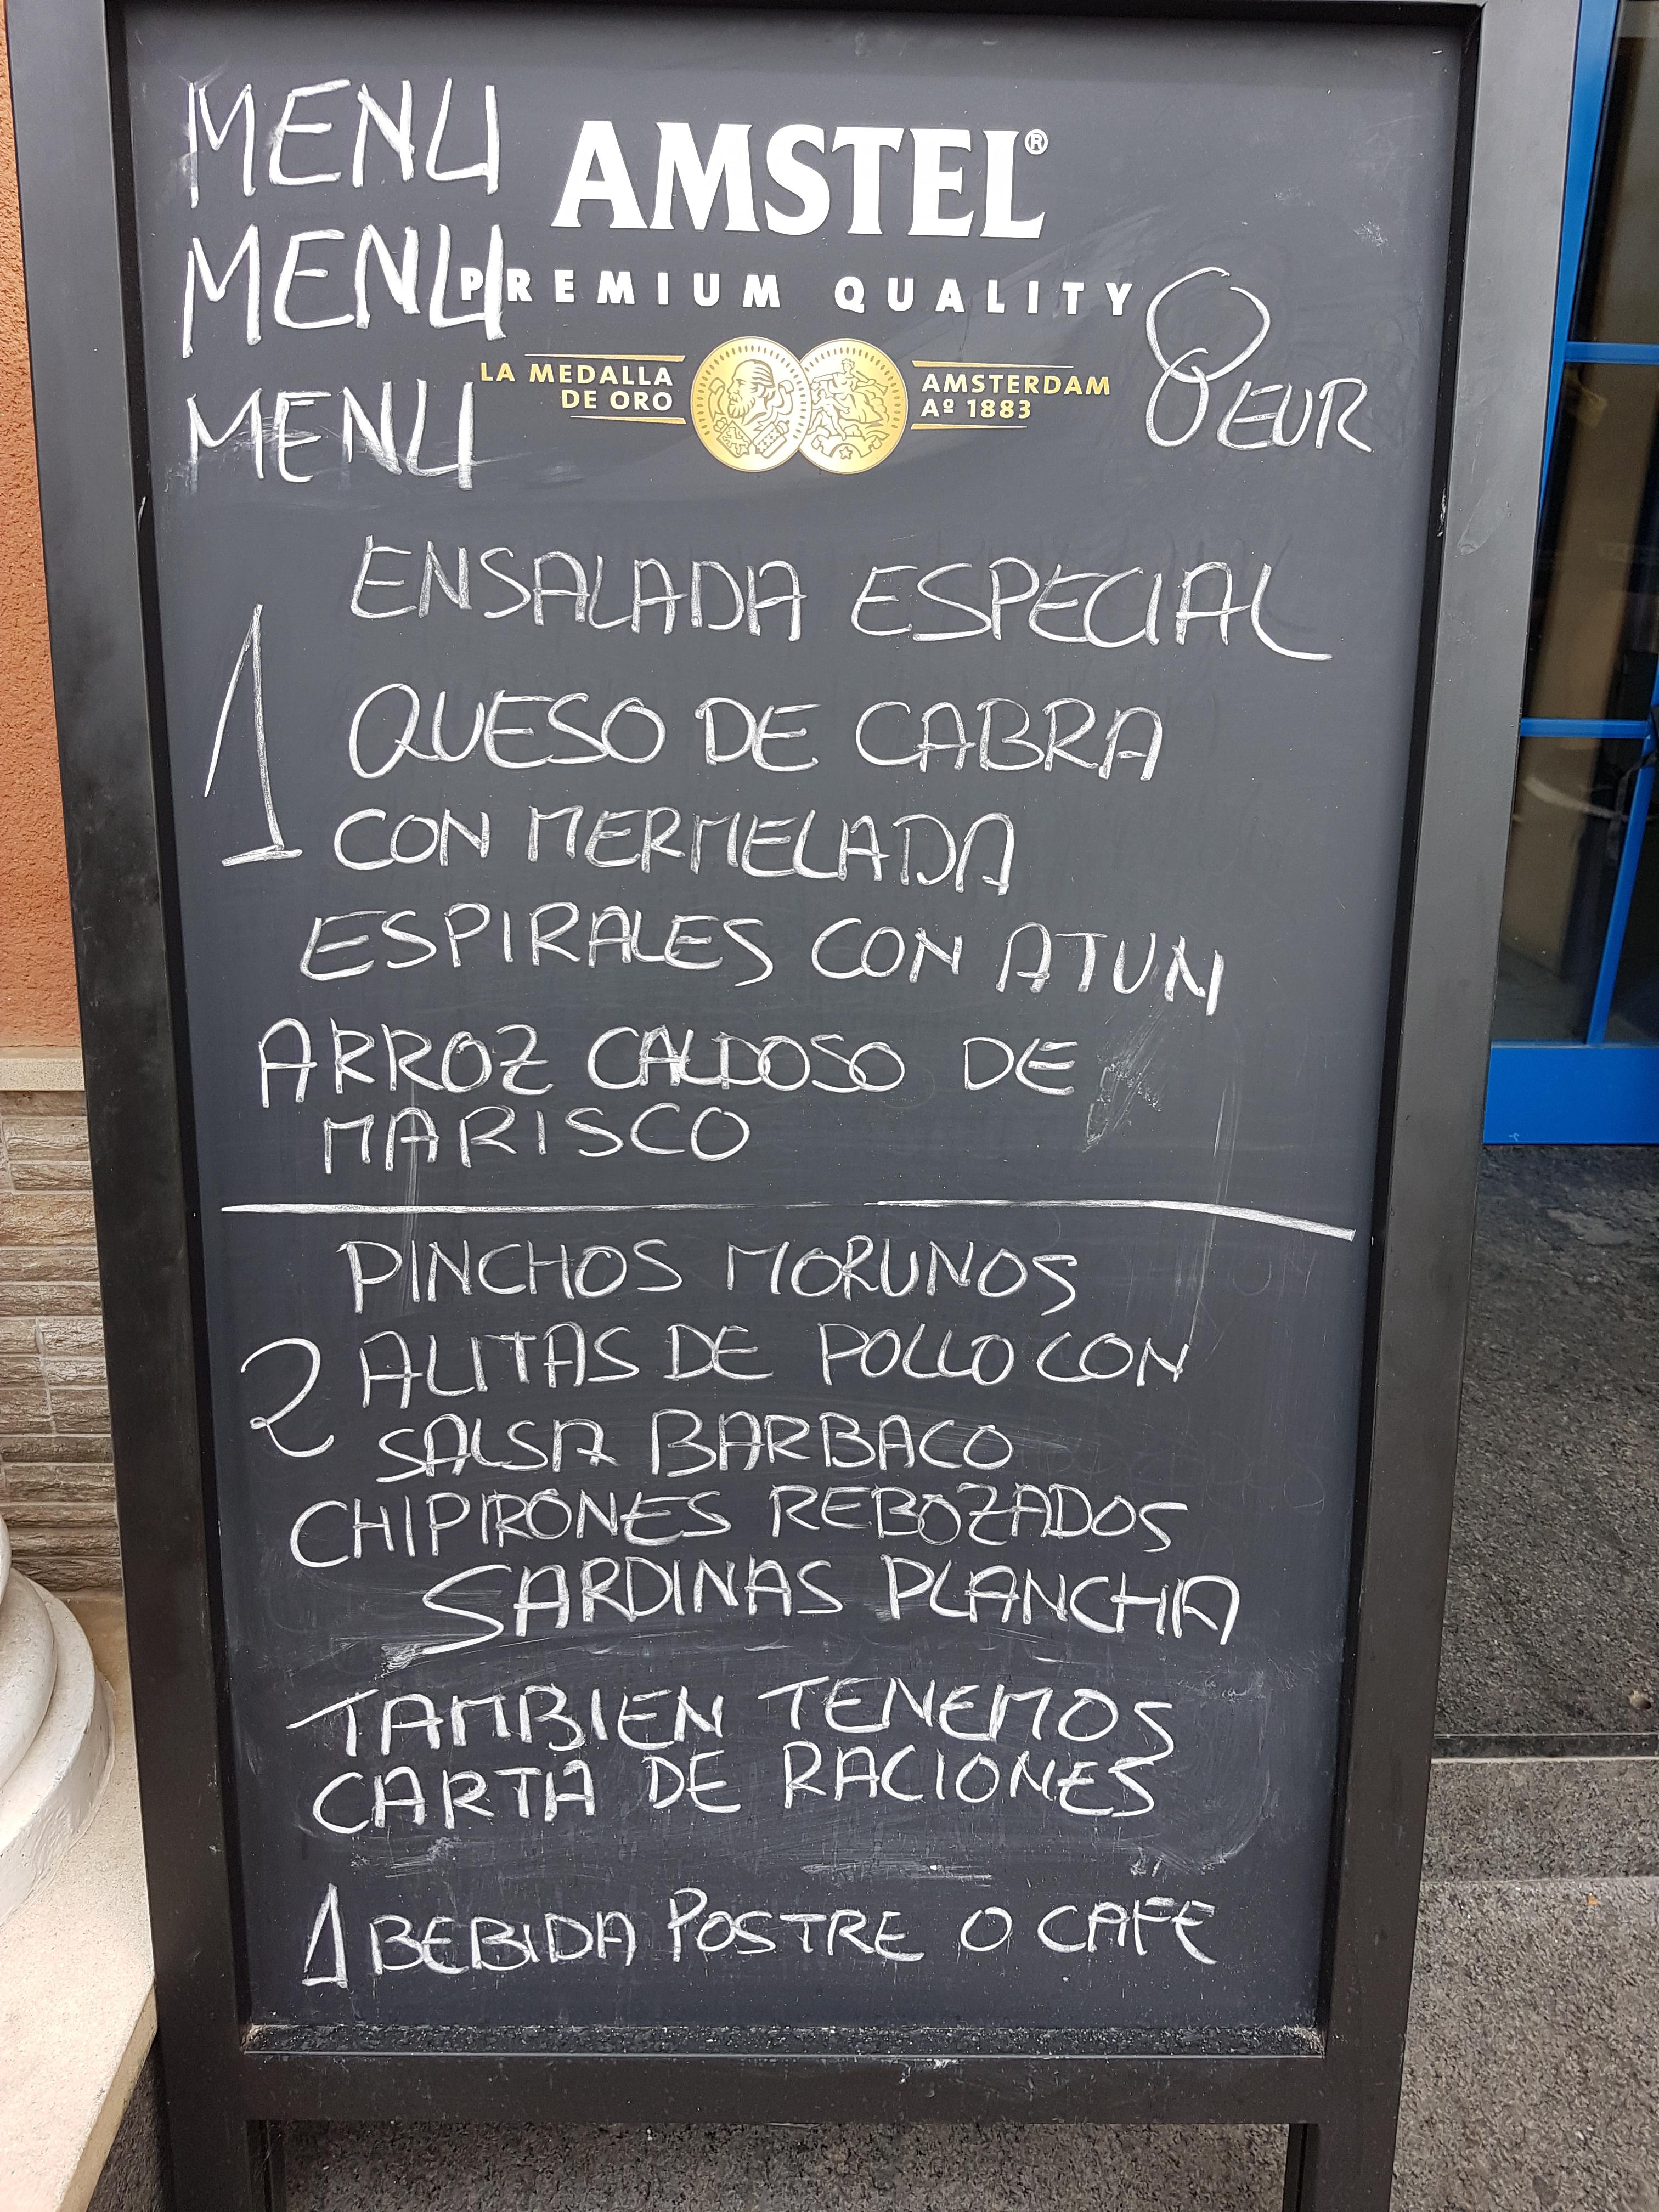 MENU
AMSTEL®
MENU
PREMIUM QUALITY
8 EUR
LA MEDALLA
DE ORO
AMSTERDAM
Aº 1883
MENU
ENSALADA ESPECIAL
1
QUESO DE CABRA
CON MERMELADA
ESPIRALES CON ATUN
ARROZ CALDOSO DE
MARISCO
PINCHOS MORUNOS
2 ALITAS DE POLLO CON
SALSA BARBACO
CHIPIRONES REBOZADOS
SARDINAS PLANCHA
TAMBIEN TENEMOS
CARTA DE RACIONES
1 BEBIDA POSTRE O CAFE